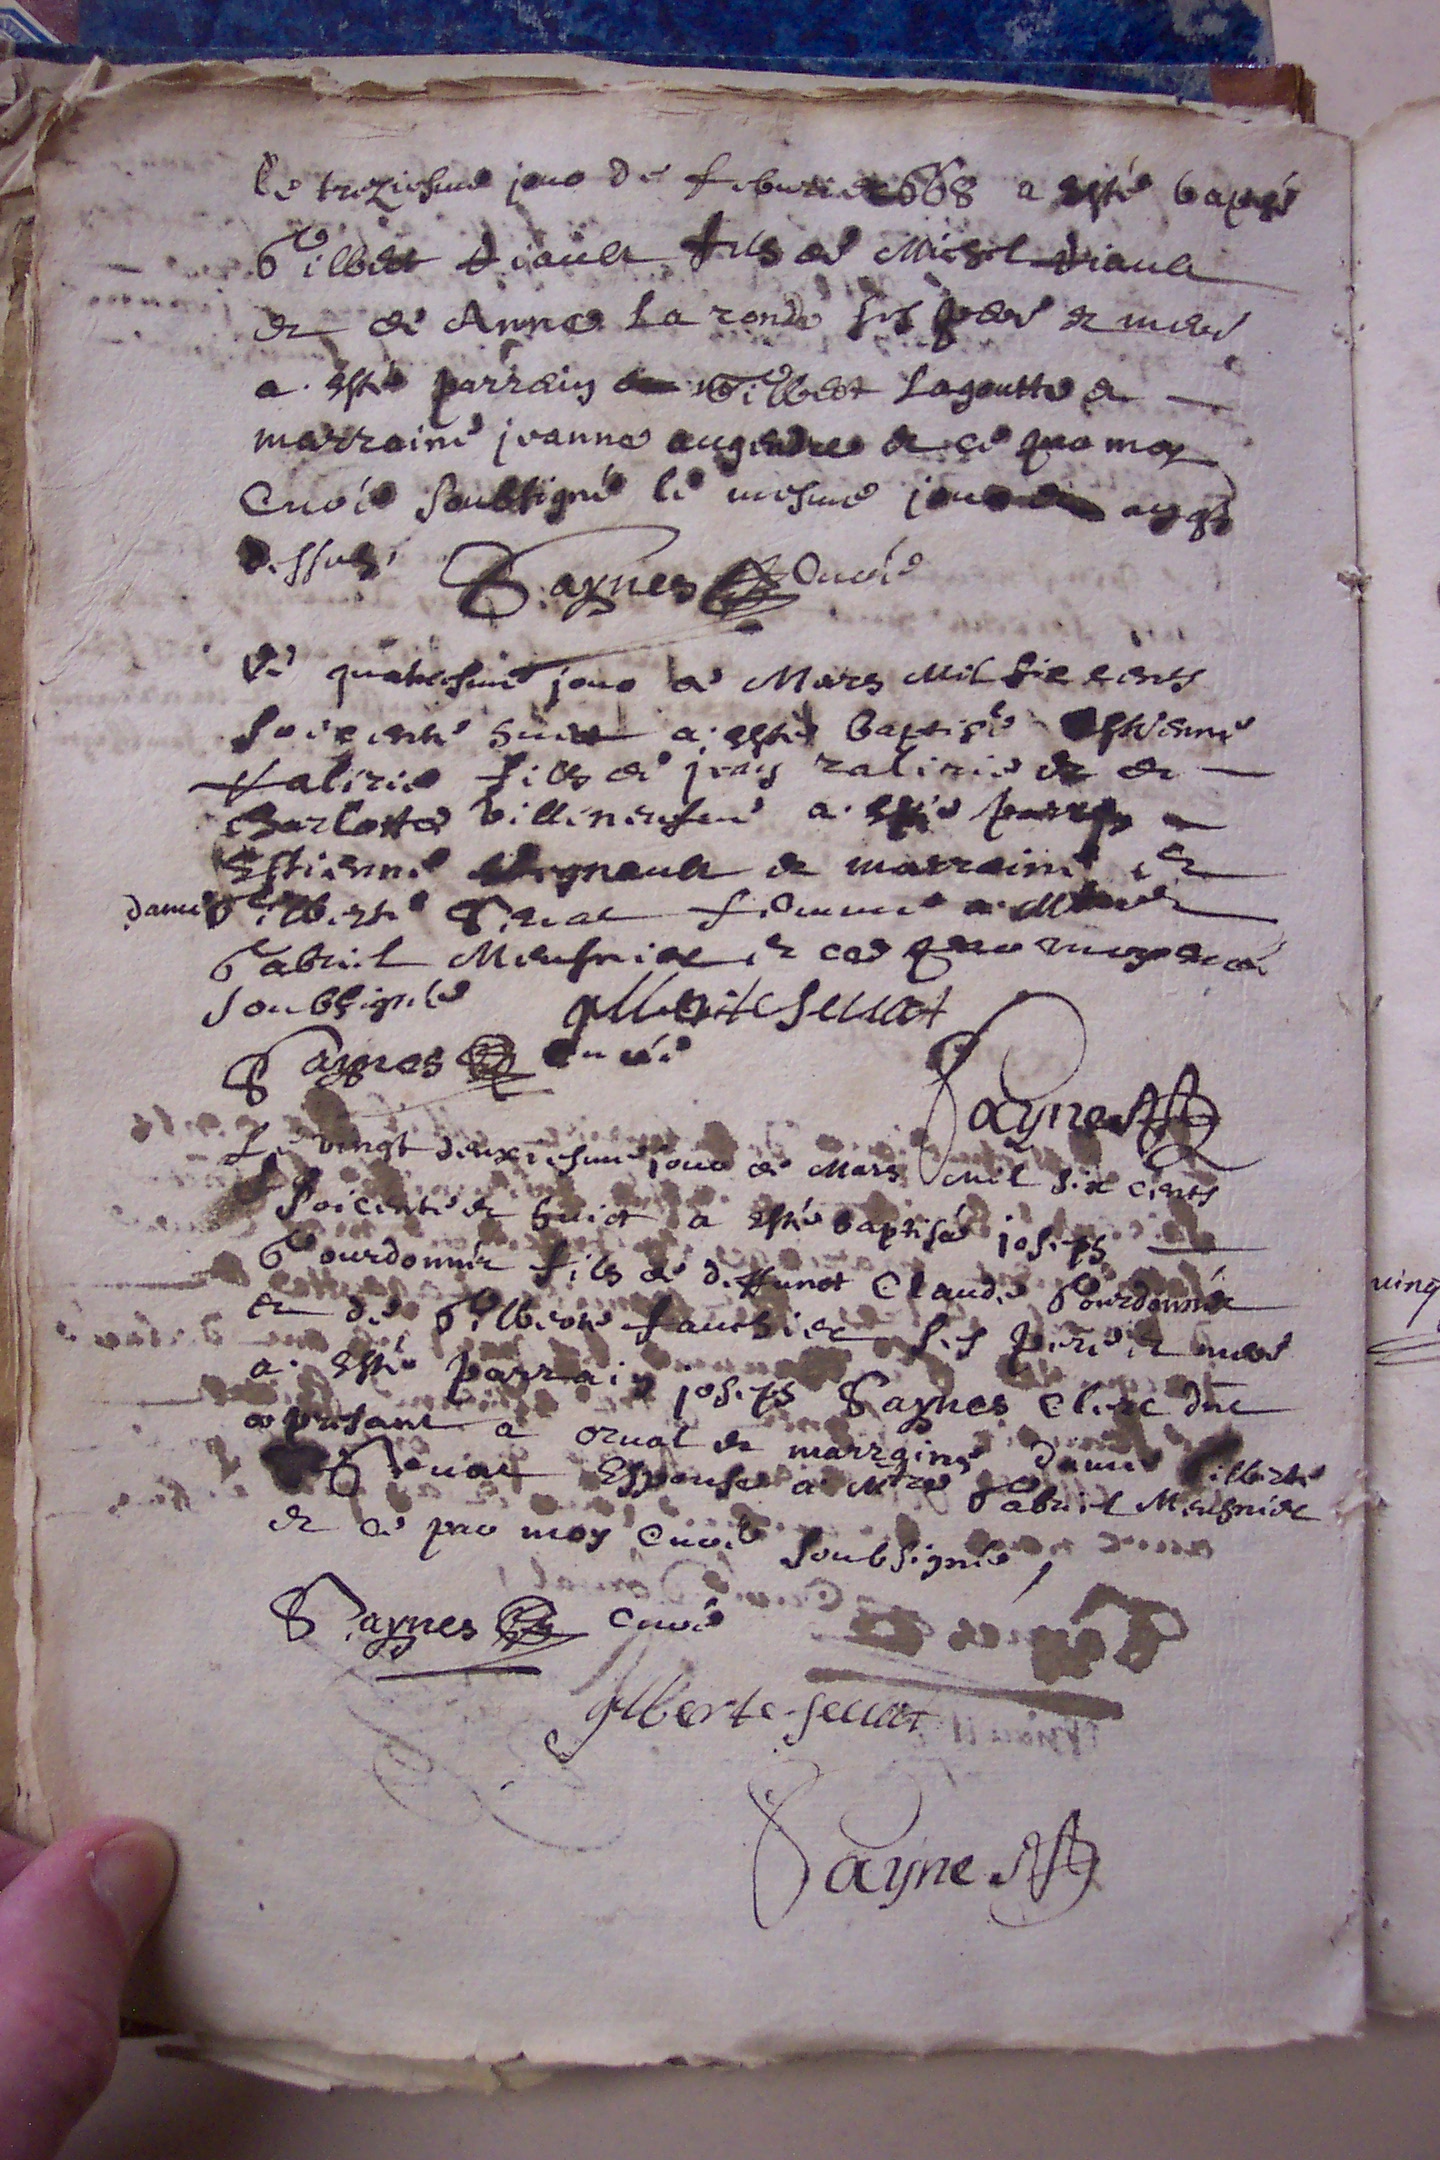 Le treziesme jour de febvrier 1668 a esté baptisé
Gilbert Viault fils de Michel Viault
et de Anne La ronde ses pere et mere
a esté parrain Gilbert Lagoutte et
marraine jeanne augendre et ce par moy
Curé soubsigné le mesme jour
dessus,
Paynes Curé
Le quatriesme jour de Mars Mil six cents
soixente huict a esté baptisé Estienne
fils de jean et de
Charlotte a esté parrain
Estienne Vigneault et marraine
dame Gilberte Seuat femme a Mtre
Gabriel Meusnier et ce par moy curé
soubsigné gilberte Seuat
Paynes Curé
Paynes
Le vingt deuxiesme jour de Mars Mil six cents
soixente et huict a esté baptisé joseph
Gourdonnier fils de deffunct Claude Gourdonnier
et de Gilberte fauchier ses pere et mere
a esté parrain joseph Paynes Clerc
a present a orual et marraine dame Gilberte
Seuat Espouse a Mtre Gabriel Meusnier
et ce par moy Curé soubsigné,
Paynes Curé
gilberte Seuat
Paynes